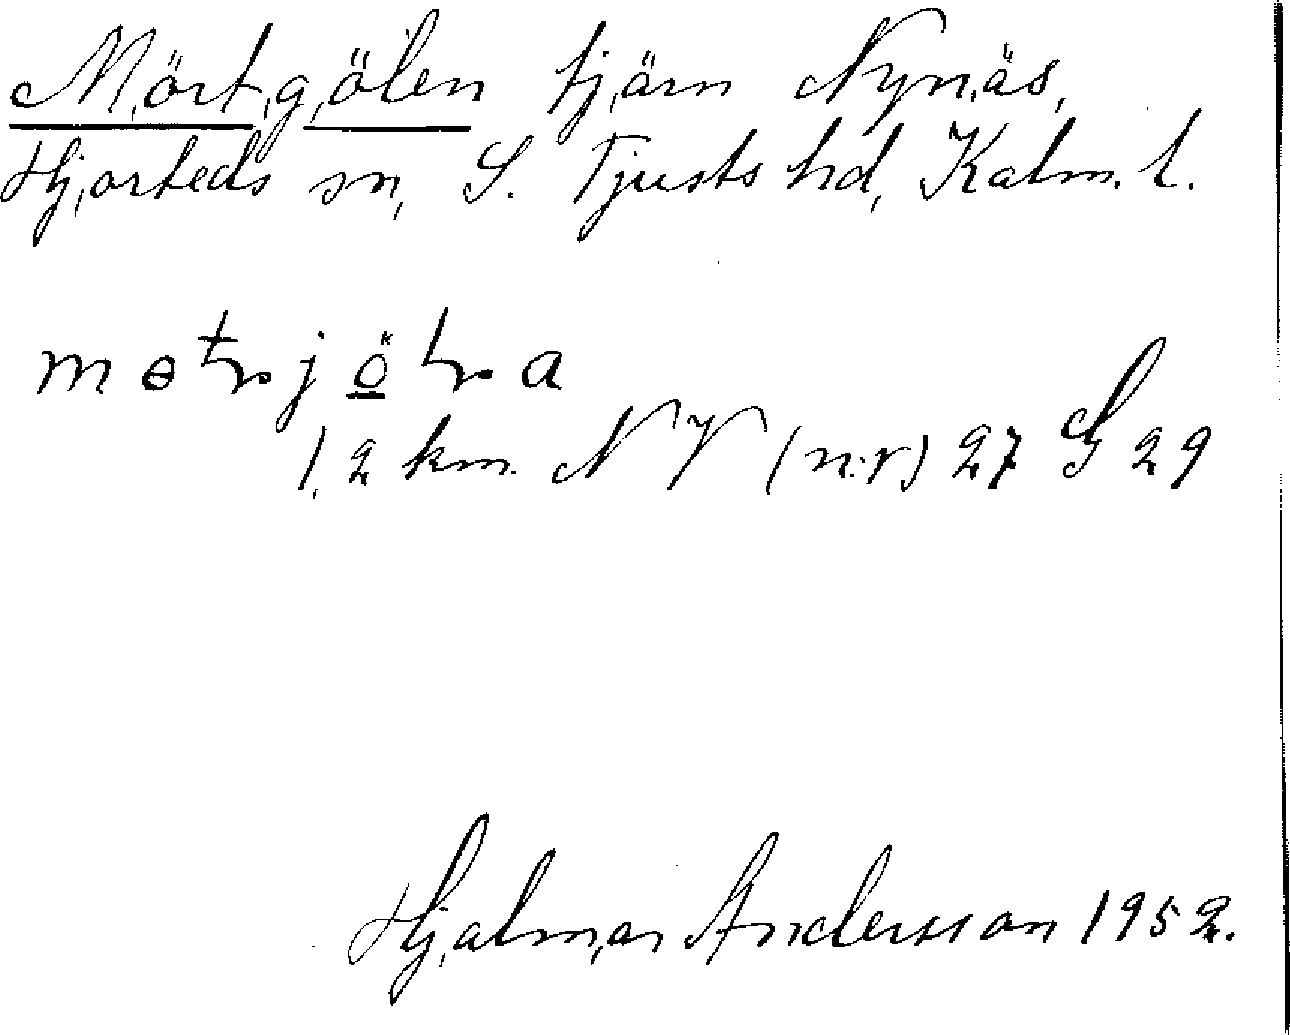 Mörtgölen tjärn Nynäs,
Hjorteds sn, S. Tjusts hd, Kalm. l.
1,2 km. NV (n:r) 27 G 29
Hjalmar Andersson 1952.